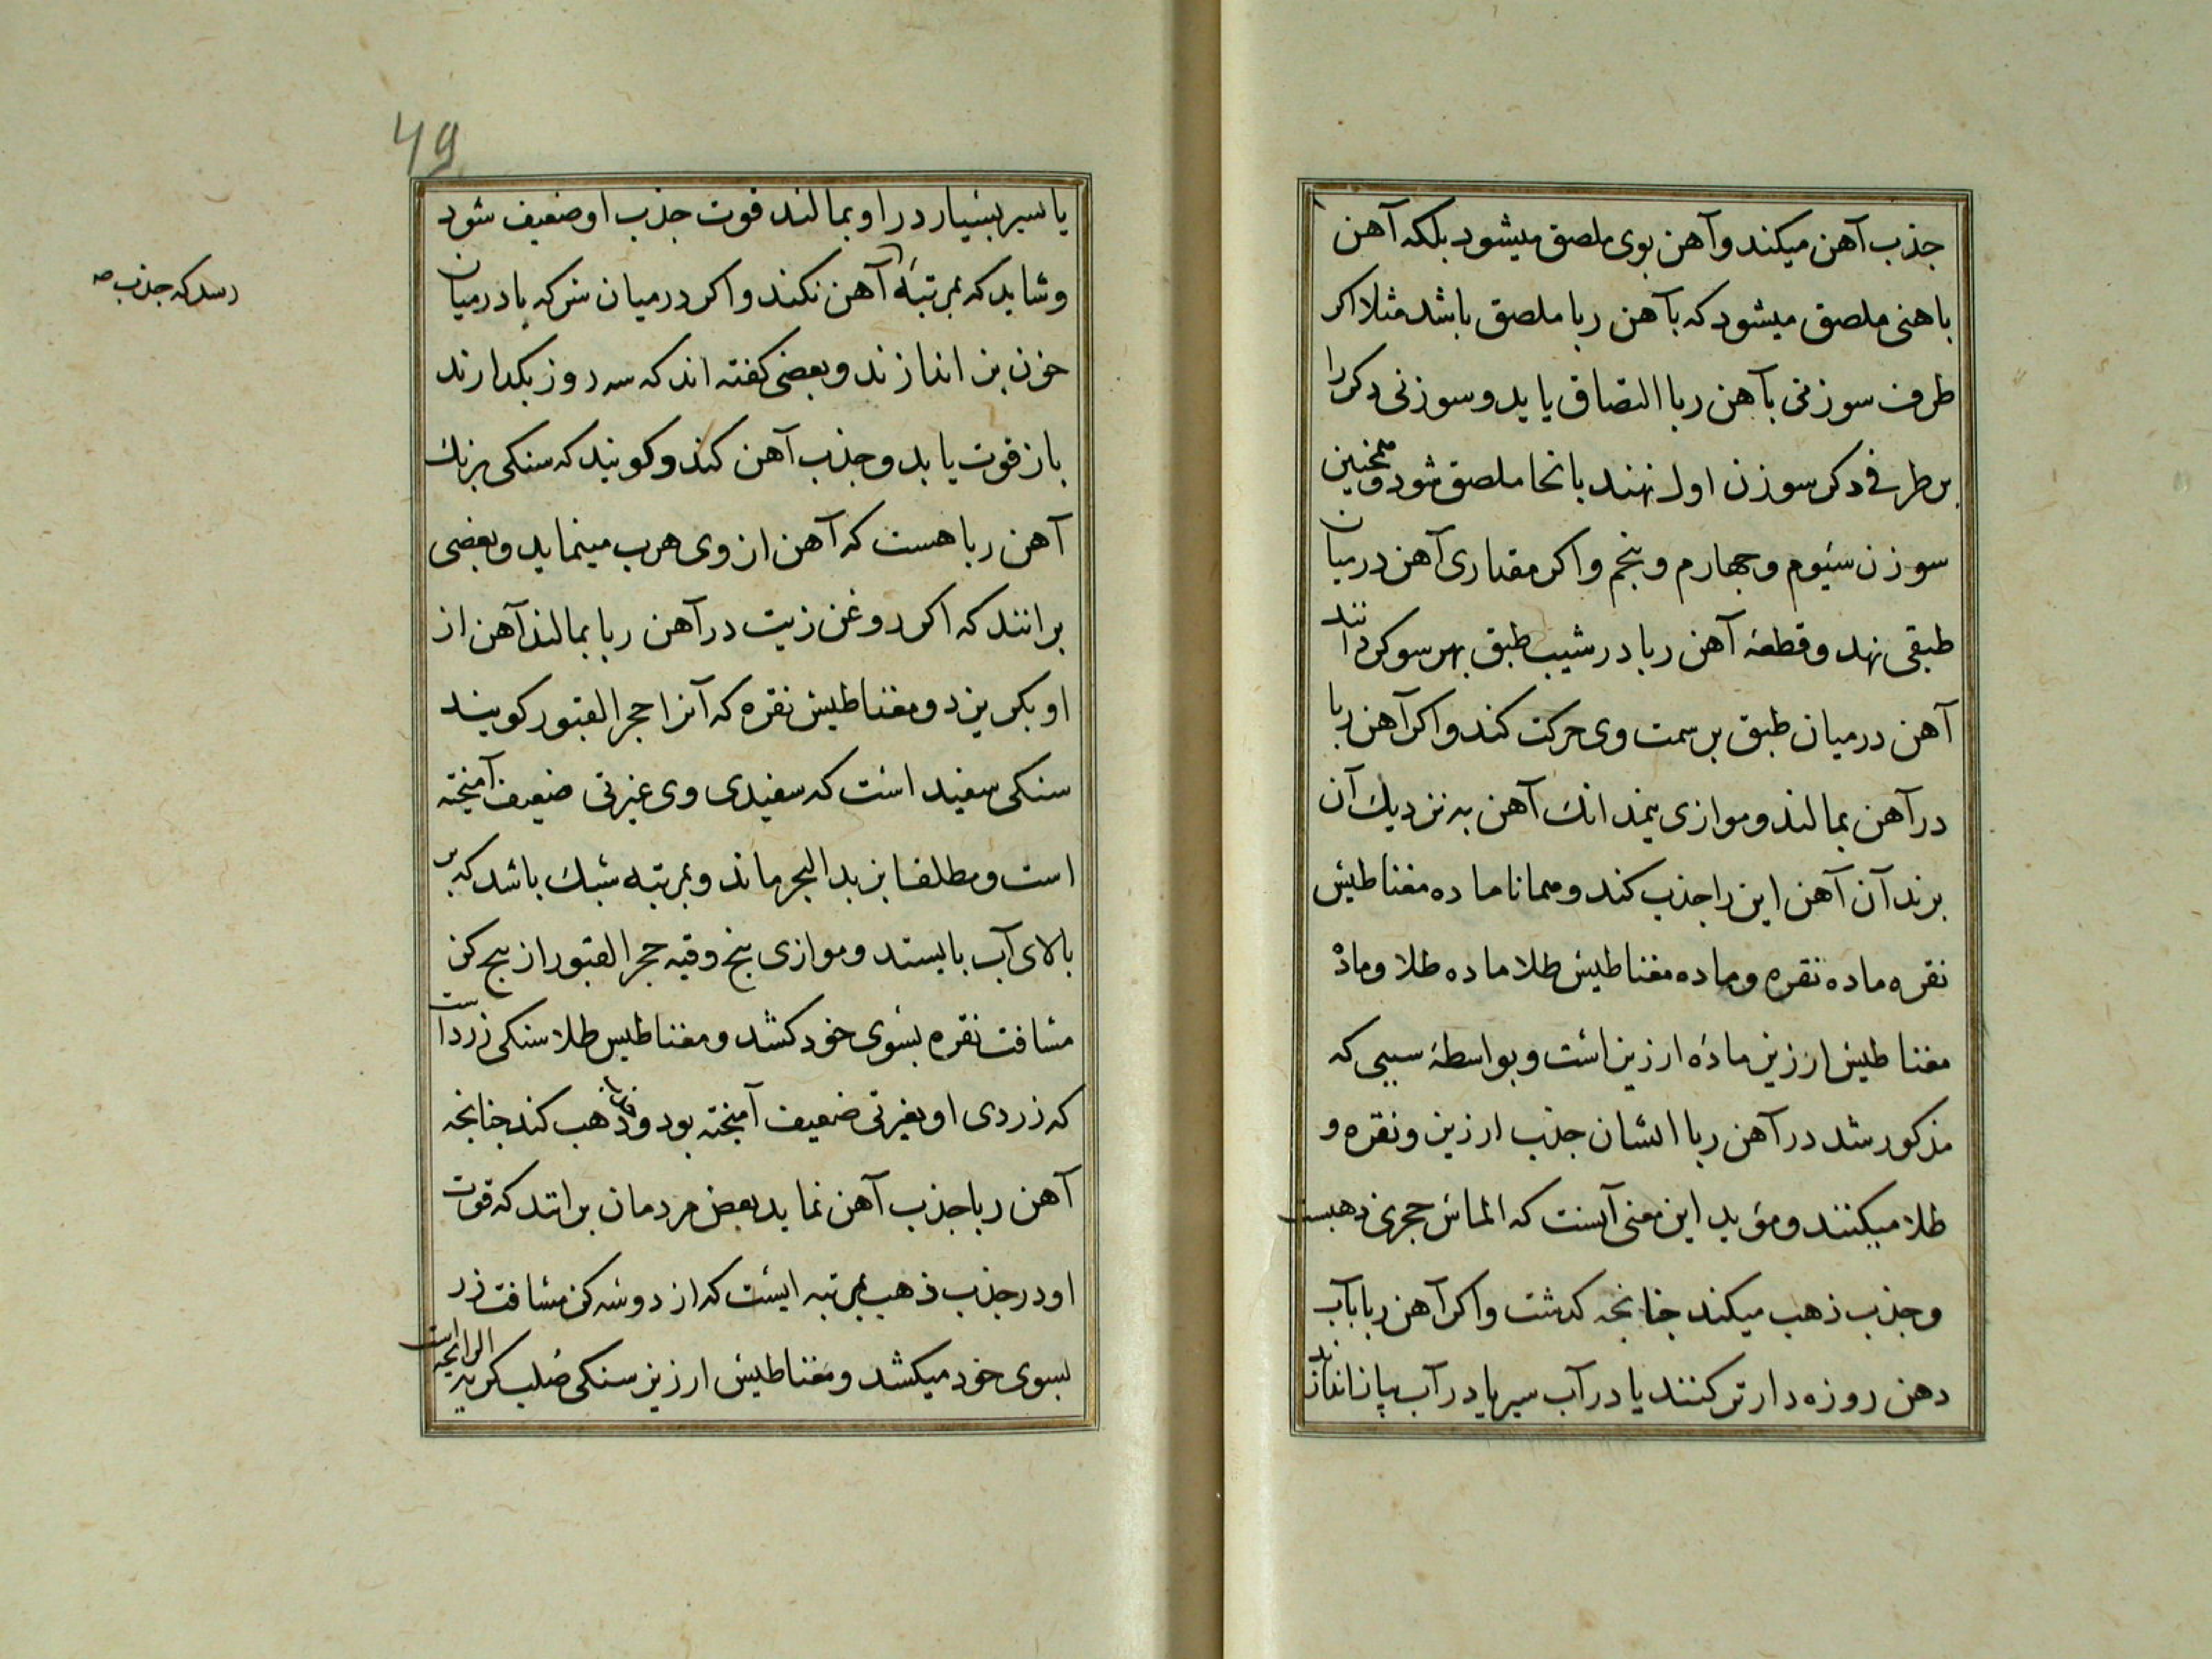 جذب آهن میکند و آهن بوی ملصق میشود بلکه آهن
باهنی ملصق میشود که بآهن ربا ملصق باشد مثلا اکر
طرف سوزنی بآهن ربا التصاق یابد و سوزنی دکر را
بر طرفی دکر سوزن اول نهند بانجا ملصق شود و همچنین
سوزن سیوم و جهارم و پنجم و اکر مقداری آهن در میان
طبقی نهد و قطعه آهن ربا در شیب طبق بهر سو کردانند
آهن در میان طبق بر سمت وی حرکت کند و اکر آهن ربا
در آهن بمالند و موازی نیمدانك آهن به نزدیك آن
برند آن آهن این را جذب کند و همانا ماده مغناطیس
نقره ماده نقره و ماده مغناطیس طلا ماده طلا و ماده
مغناطیس ارزیز ماده ارزیز است و بواسطه سببی که
مذکور شد در آهن ربا ایشان جذب ارزیز و نقره و
طلا میکنند و مؤید این معنی آنست که الماس حجری ذهبیست
و جذب ذهب میکند جنانجه کدشت و اکر آهن ربا بآب
دهن روزه دار تر کنند یا در آب سیر یا در آب پیاز اندازند
یا سیر بسیار در او بمالند قوت جذب او ضعیف شود
و شاید که بمرتبه آهن نکند و اکر در میان سرکه یا در میان
رسد که جذب صح
خون بز اندازند و بعضی کفته اند که سه روز بکدارند
باز قوت یابد و جذب آهن کند و کویند که سنکی برنك
آهن ربا هست که آهن از وی هرب مینماید و بعضی
برانند که اکر روغن زیت در آهن ربا بمالند آهن از
او بکریزد و مغناطیس نقره که آنرا حجر القبور کویند
سنکی سفید است که سفیدی وی غبرتی ضعیف آمیخته
است و مطلقا بزبد البحر ماند و بمرتبه سبك باشد که بر
بالای آب بایستد و موازی پنج وقیه حجر القبور از پنج کز
مسافت نقره بسوی خود کشد و مغناطیس طلا سنکی زرد است
که زردی او بغبرتی ضعیف آمیخته بود و ذهب کند جنانجه
آهن ربا جذب آهن نماید بعض مردمان برانند که قوت
او در جذب ذهب بمرتبه ایست که از دو سه کز مسافت زر
بسوی خود میکشد و مغناطیس ارزیز سنکی صلب کریه الرایحه است